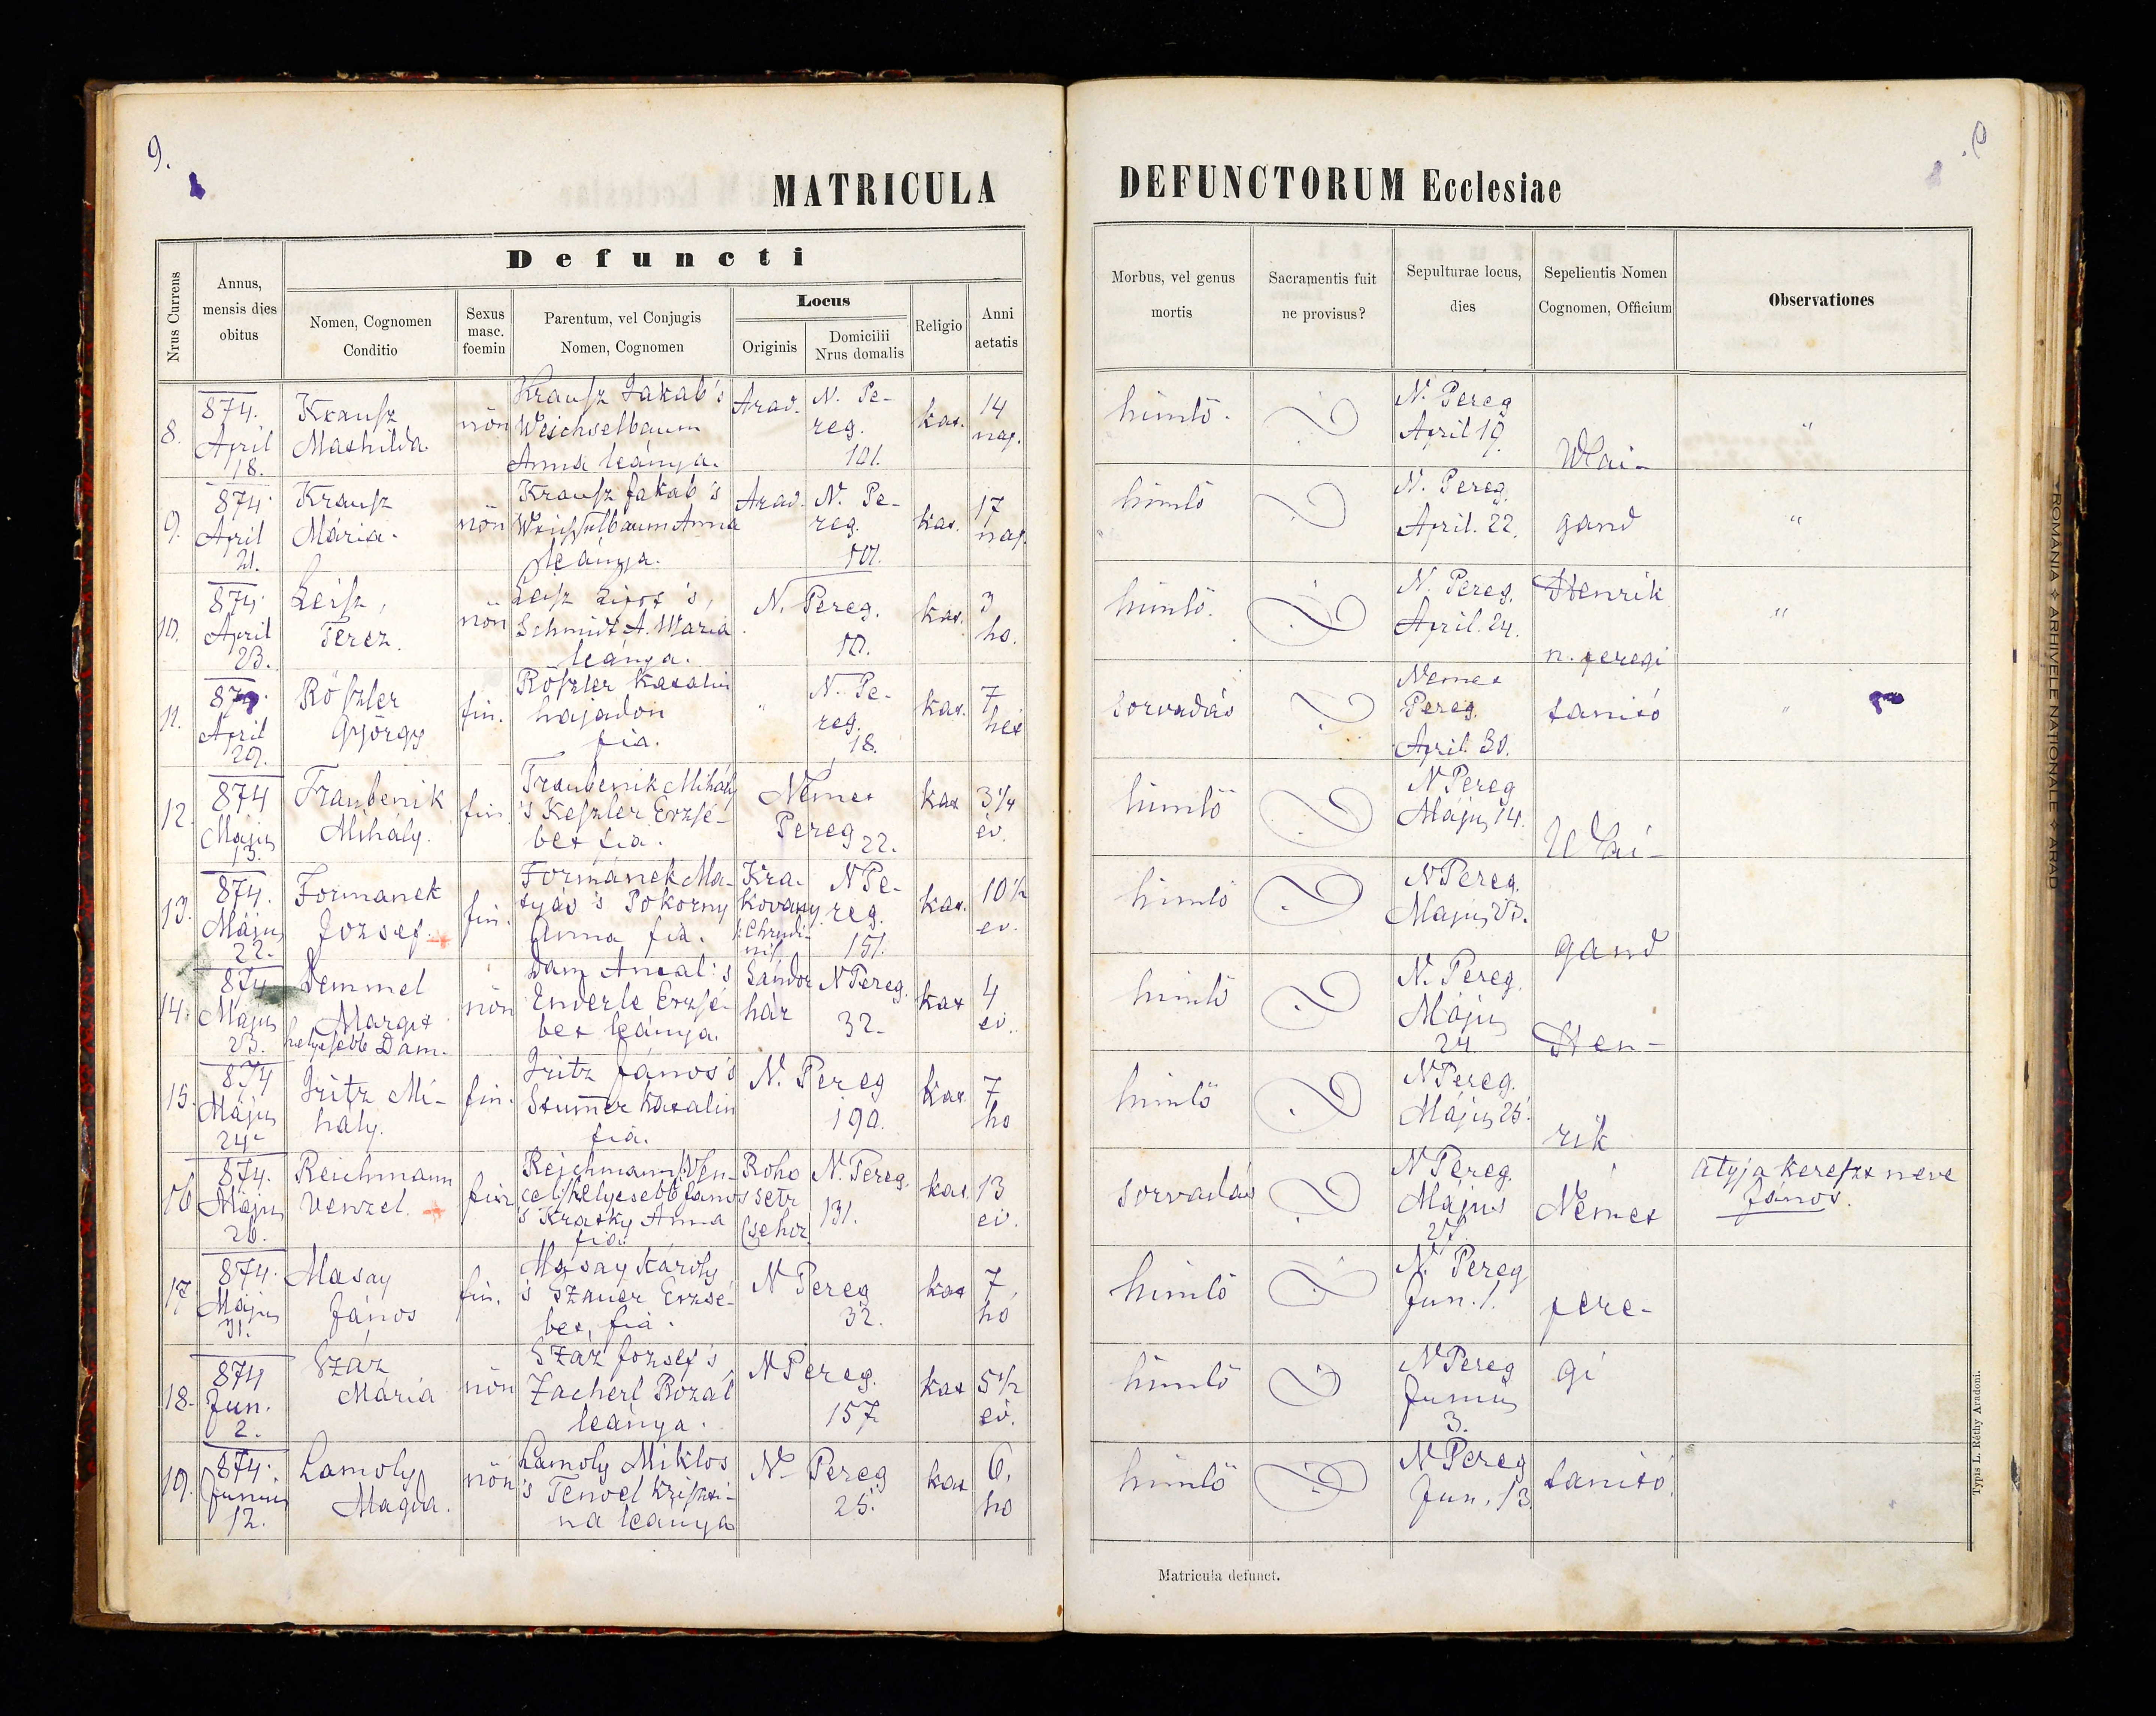 9.
MATRICULA
DEFUNCTORUM Ecclesiae
Defuncti
Nrus Currens
Annus,
mensis dies
obitus
Nomen, Cognomen
Conditio
Sexus
masc.
foemin
Parentum, vel Conjugis
Nomen, Cognomen
Locus
Originis
Domicilii
Nrus domalis
Religio
Anni
aetatis
Morbus, vel genus
mortis
Sacramentis fuit
ne provisus?
Sepulturae locus,
dies
Sepelientis Nomen
Cognomen, Officium
Observationes
8.
874.
April
18.
Krausz
Mathilda.
nön
Krausz Jakab 's
Weichselbaum
Anna leánya.
Arad.
N. Pe-
reg.
101.
kat.
14
nap.
himlö.
N. Pereg
April 19.
"
9.
874.
April
21.
Krausz
Mária.
nön
Krausz Jakab 's
Weichselbaum Anna
leánya.
Arad.
N. Pe-
reg.
101.
kat.
17
nap.
himlö
N. Pereg.
April. 22.
"
10.
874.
April
23.
Leisz,
Terez.
nön
Schmidt A. Maria
leánya.
N. Pereg.
kat.
3
ho.
himlö.
N. Pereg.
April. 24.
"
11.
April
29.
Röszler
György
fin.
Röszler Katalin
hajadon
fia.
"
N. Pe-
reg.
18.
kat.
7
het
sorvadás
Nemet
Pereg.
April 30.
"
Wai-
gand
Henrik
n. peregi
tanitó
12.
874
Május
13.
Traubenik
Mihály.
fin.
Traubenik Mihály
's Keszler Erzsé-
bet fia.
Német
Pereg
22.
kat
3 1/4
év.
himlö
N Pereg
Május 14.
13.
874.
Május
22.
Formanek
Jozsef.
fin.
Formánek Ma-
tyás 's Pokorny
Anna fia.
Kra-
kovany
N Pe-
reg.
151.
kat.
10 1/2
ev.
himlö
N Pereg.
Május 23.
14.
874
Május
23.
Demmel
Margit
helyesebb Dam.
nön
Dam Antal 's
Enderle Erzsé-
bet leánya.
Sándor
hár
N Pereg.
32.
kat
4
ev.
himlö
N. Pereg.
Május
24
15.
874
Május
24
Fritz Mi-
haly.
fin.
Fritz János 's
Stumer Katalin
fia.
N. Pereg
190.
kat
7
ho
himlö
N Pereg.
Május 25.
16
874.
Május
26.
Reichmann
Venzel.
fin
Reichmann Ven-
cel helyesebb János
's Kratky Anna
fia.
Roho
setz
N. Pereg.
131.
kat.
13
ev.
sorvadás
N Pereg.
Május
27.
Atyja kereszt neve
János.
17
874.
Május
31.
Masay
János
fin.
Masay Károly
's Szauer Erzsé-
bet, fia.
N Pereg
32.
kat
7
hó
himlö
N. Pereg
Jun. 1.
18.
874
Jun.
2.
Száz
Mária
nön
Száz Jozsef 's
Zacherl Rozal
leánya.
N Pereg.
157.
kat
5 1/2
ev.
himlö
N Pereg
Junius
3.
19.
874.
Junius
12.
Lamoly
Magda.
nön
Lamoly Miklos
's Tendel Kriszti-
na leánya
N. Pereg
25.
kat
6.
ho
himlö
N Pereg
Jun. 13
Wai-
gand
Hen-
rik
Német
pere-
gi
tanitó.
Matricula defunct.
Typis L. Réthy Aradoni.
ROMÂNIA ARHIVELE NAȚIONALE ARAD